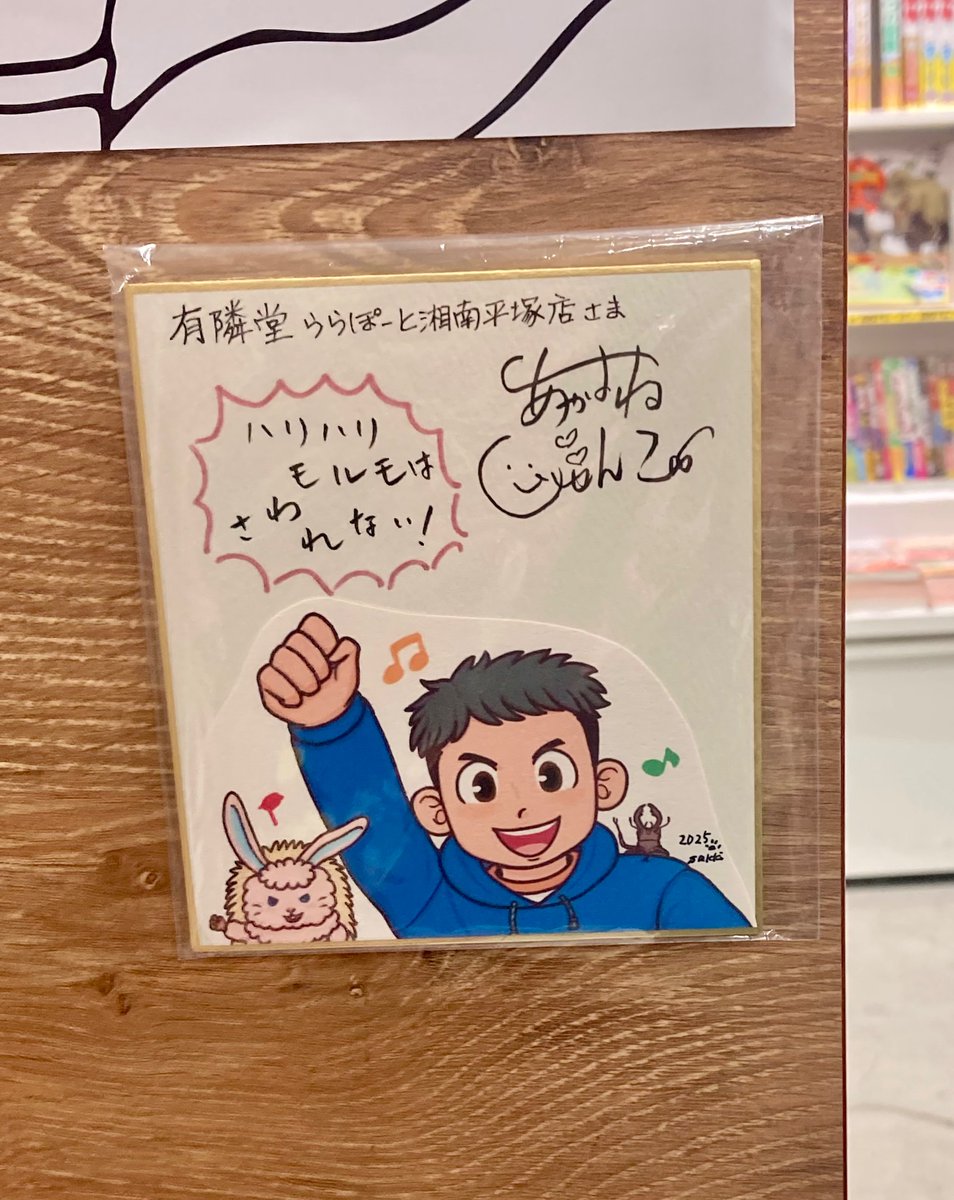 有隣堂 ららぽーと湘南平塚店さま
ハリハリ
モルモは
さわれない!
あかはね
じゅんこ
2025
sakki